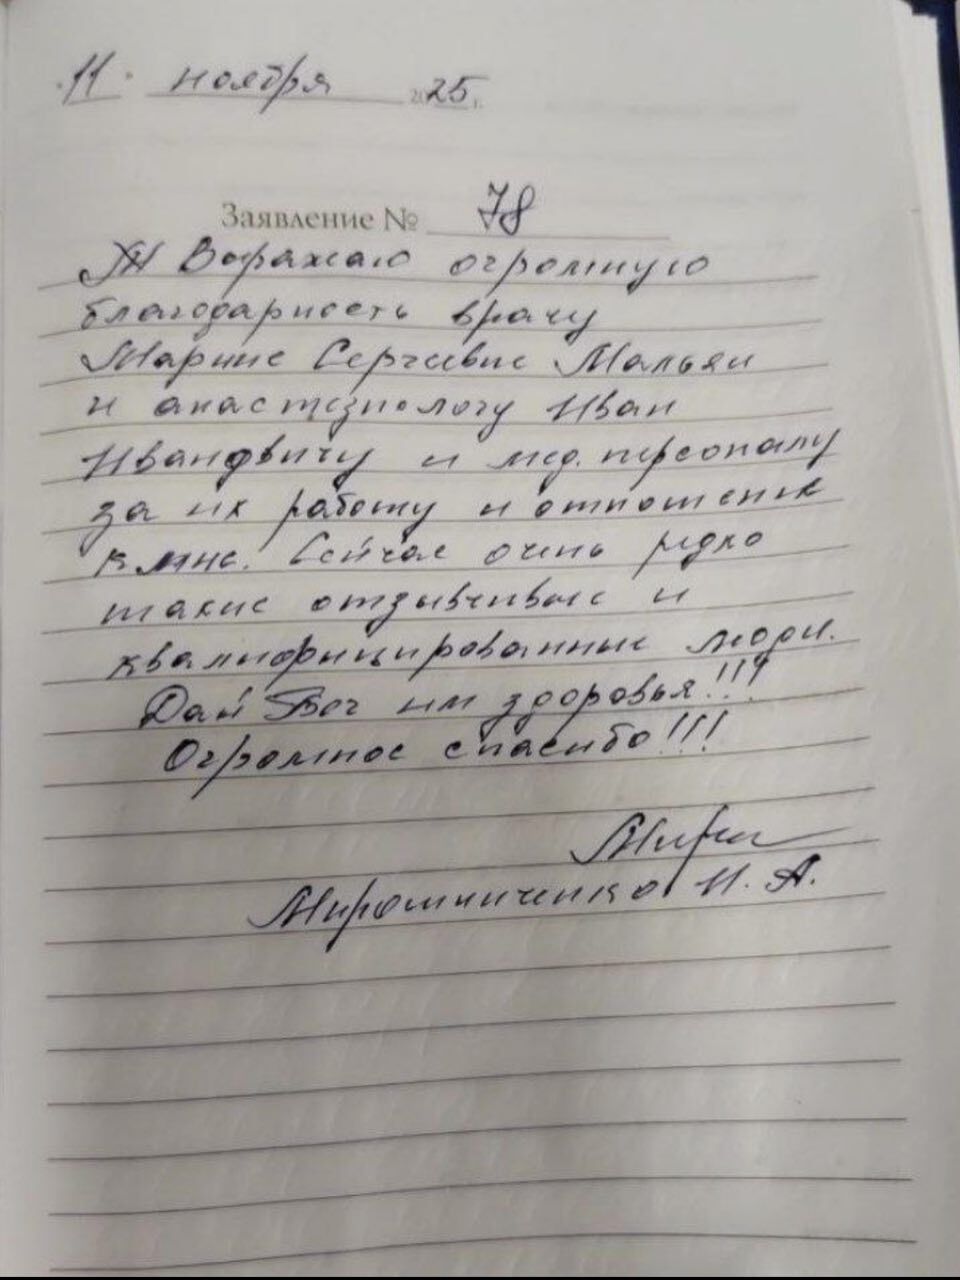 11 ноября 2025 г.
Заявление № 78
Выражаю огромную
благодарность врачу
Марине Сергеевне Мальян
и анастезиологу Иван
Ивановичу и мед. персоналу
за их работу и отношение
к мне. Сейчас очень редко
такие отзывчивые и
квалифицированные люди.
Дай Бог им здоровья!!!
Огромное спасибо!!!
Мирошниченко Н. А.